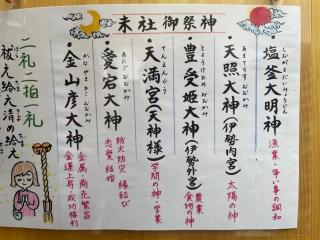 末社御祭神
塩釜大明神
しおがまだいみょうじん
漁業・争い事の調和
・天照大神(伊勢内宮)
あまてらすおおかみ
太陽の神
・豊受姫大神(伊勢外宮)
とようけひめおおかみ
農業
食物の神
・天満宮(天神様)
てんまんぐう
学問の神・学業
・愛宕大神
あたごおおかみ
防火防災 縁結び
恋愛 結婚
・金山彦大神
かなやまひこおおかみ
金属・商売繁昌
金運上昇・成功勝利
二礼二拍一礼
祓え給え清め給え